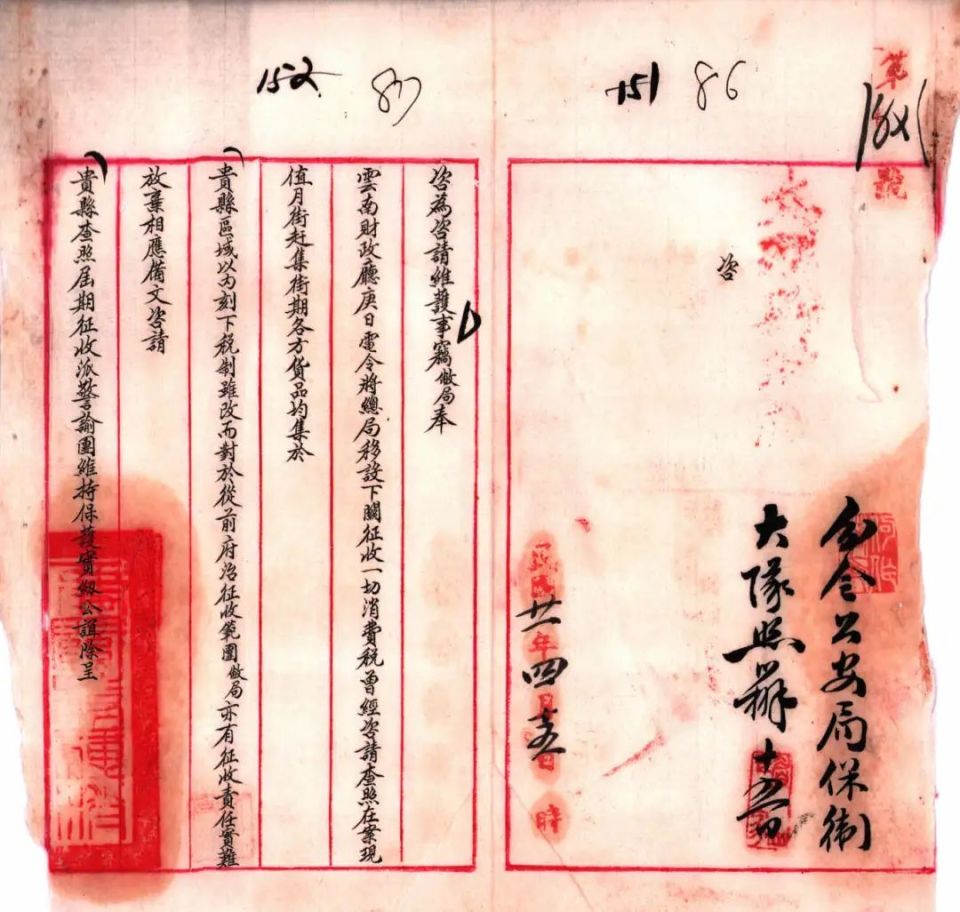 第
號
186
86
151
咨
分令公安局保衛
大隊照辦 十五日
廿一年四月十五日 時
152
87
咨為咨請維護事竊敝局奉
雲南財政廳庚日電令將總局移設下關征收一切消費稅曾經咨請查照在案現
值月街赶集街期各方貨品均集於
貴縣區域以內刻下稅制雖改而對於從前府治征收範圍敝局亦有征收責任實難
放棄相應備文咨請
貴縣查照屆期征收派警諭團維持保護實紉公誼除呈